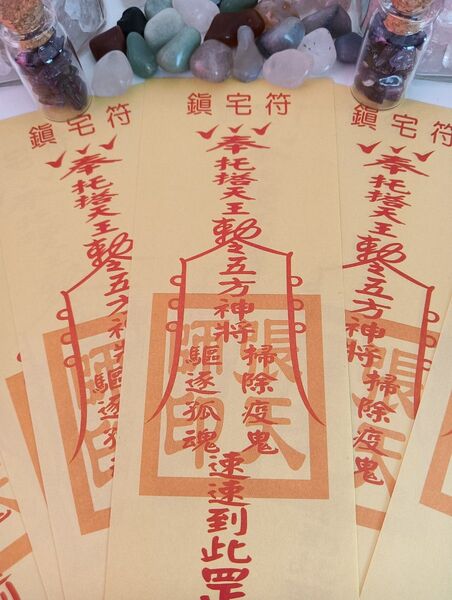 鎮宅符
奉托塔天王勅令五方神
驅逐狐
鎮宅符
奉托塔天王勅令五方神將
掃除疫鬼
驅逐狐魂
速速到此罡
張天師印
鎮宅符
奉托塔天王勅令五方神將
掃除疫鬼